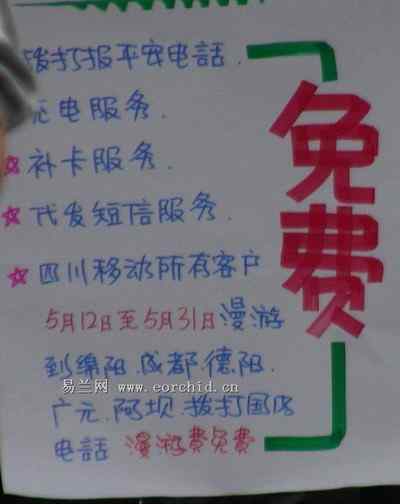 拨打报平安电話.
充电服务.
补卡服务.
代发短信服务.
四川移动所有客户
5月12日至5月31日漫游
到绵阳.成都.德阳.
广元.阿坝.拨打国内
电話 漫游费免费
免费
易兰网 www.eorchid.cn